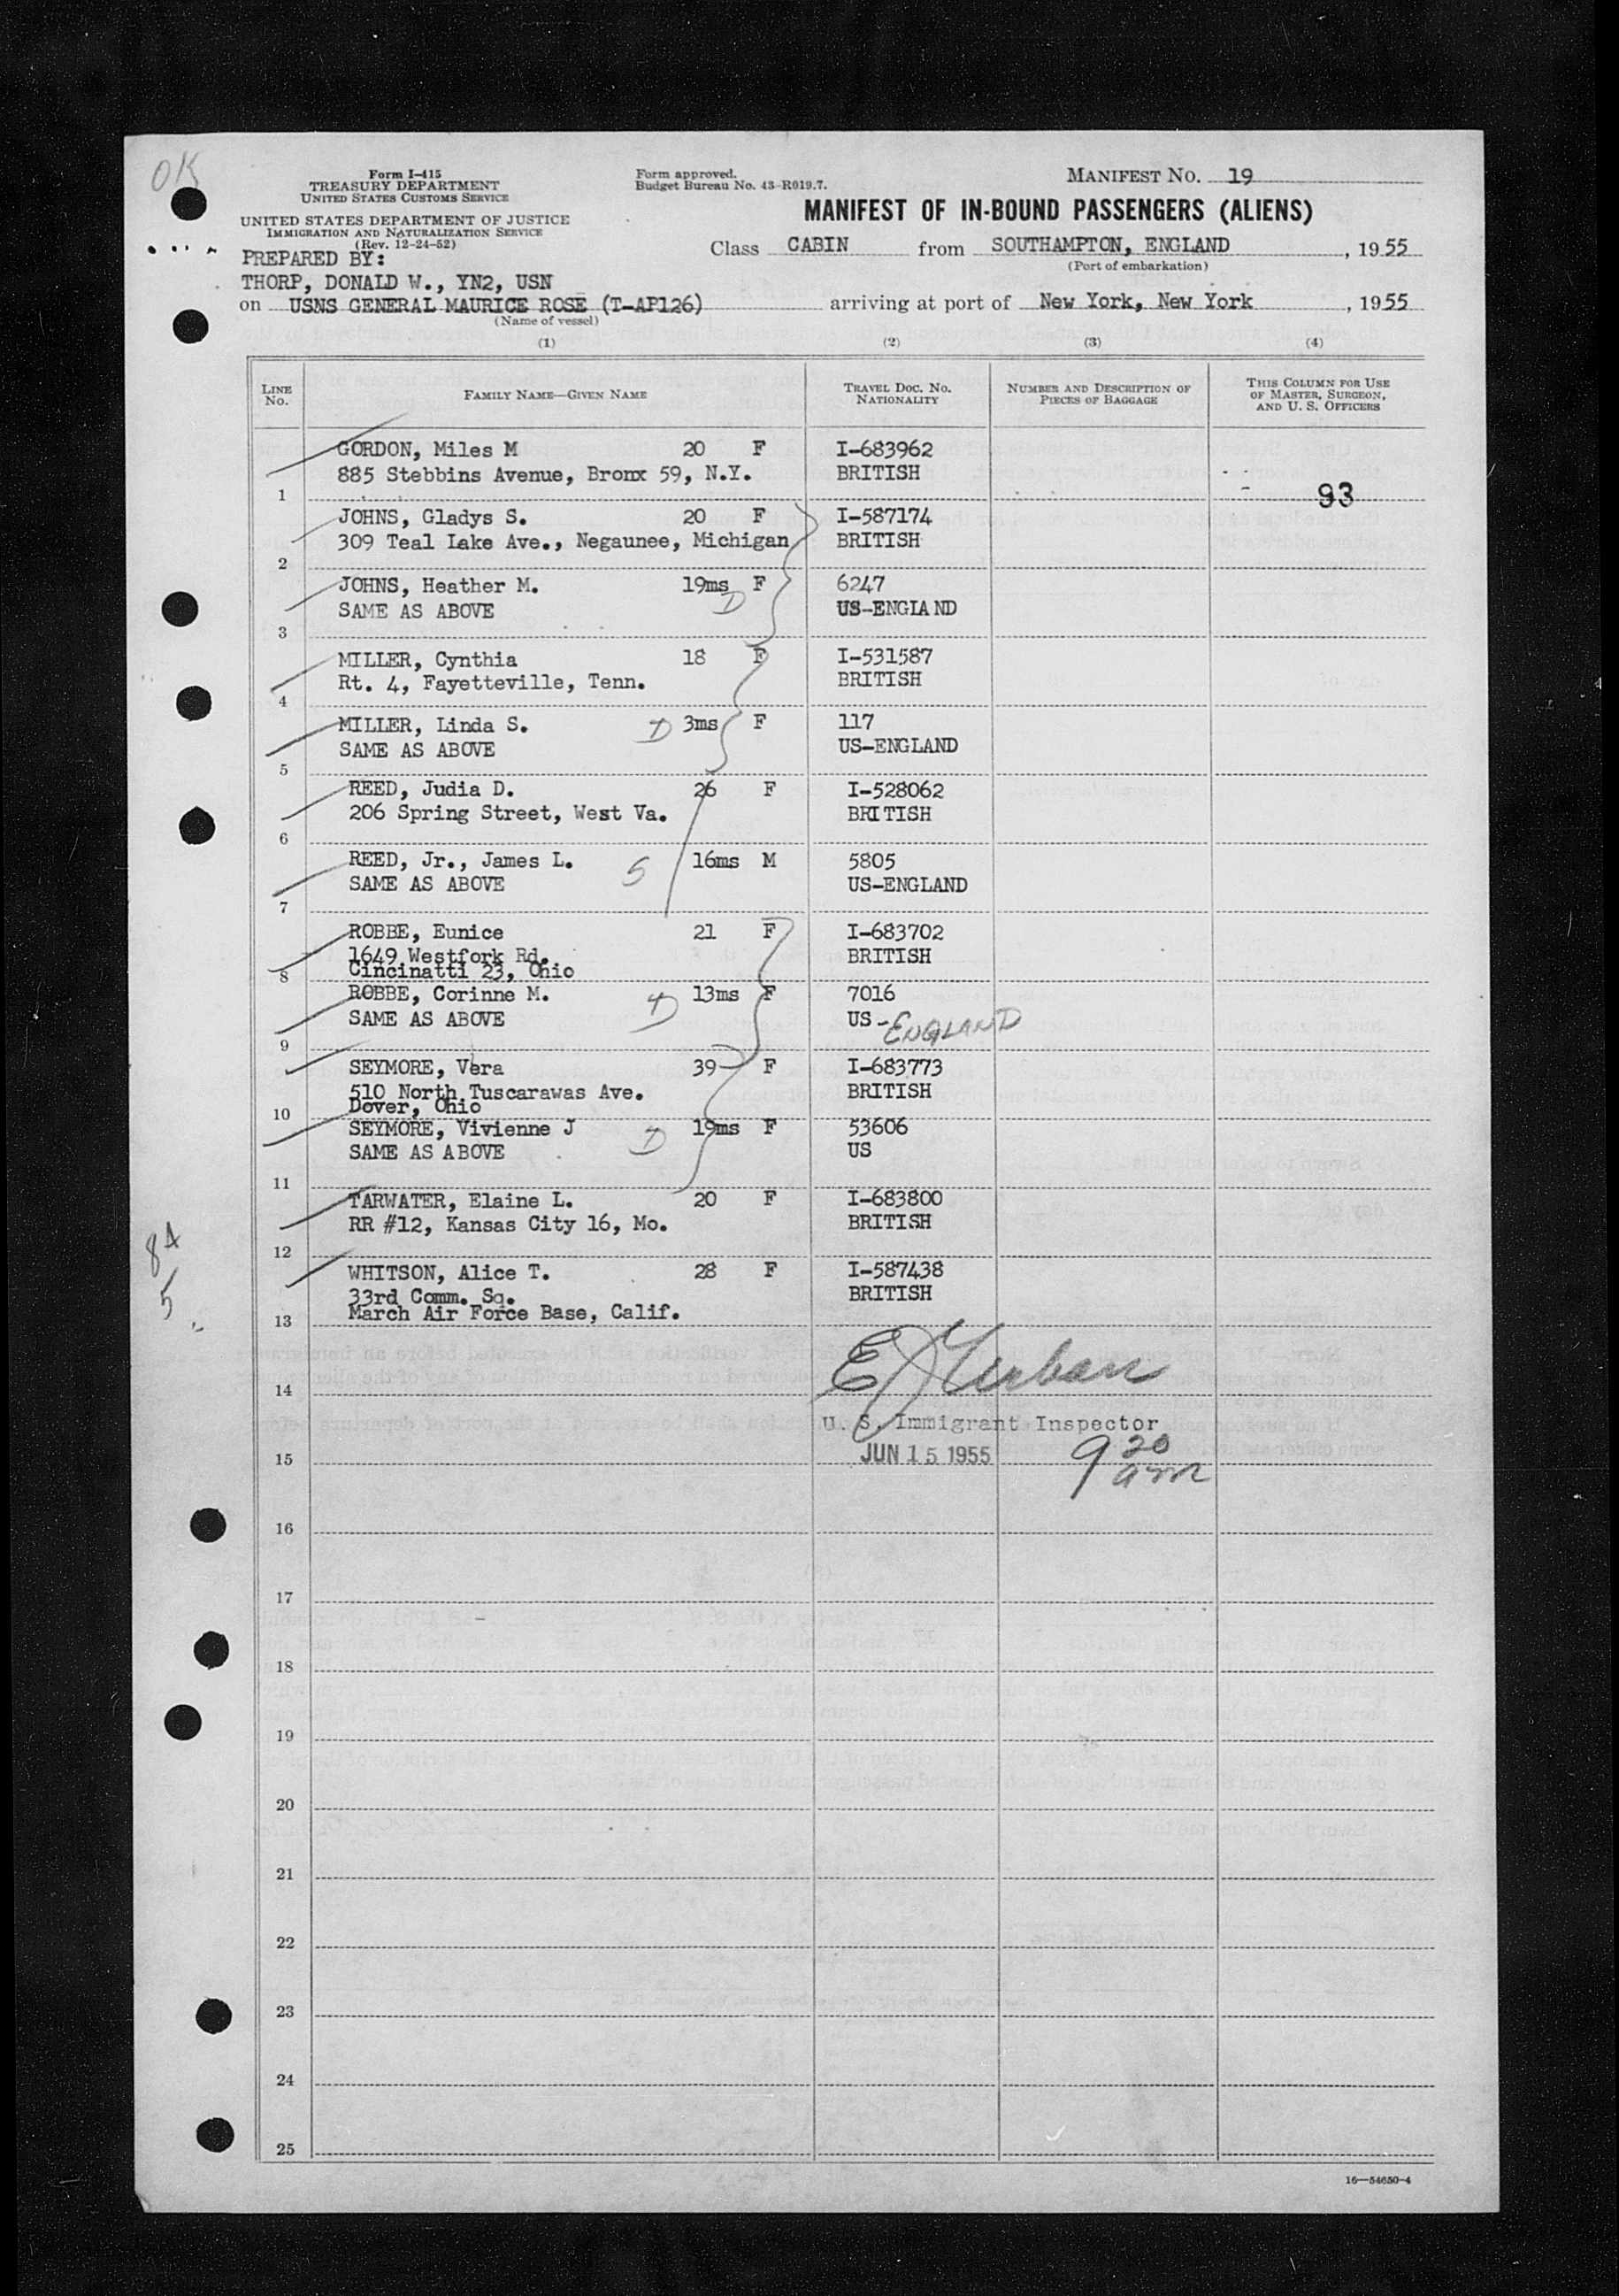 OK
Form I-415
TREASURY DEPARTMENT
UNITED STATES CUSTOMS SERVICE
UNITED STATES DEPARTMENT OF JUSTICE
IMMIGRATION AND NATURALIZATION SERVICE
(Rev. 12-24-52)
Form approved.
Budget Bureau No. 43-R019.7.
MANIFEST NO. 19
MANIFEST OF IN-BOUND PASSENGERS (ALIENS)
Class CABIN from SOUTHAMPTON, ENGLAND, 1955
(Port of embarkation)
PREPARED BY:
THORP, DONALD W., YN2, USN
on USNS GENERAL MAURICE ROSE (T-AP126) arriving at port of New York, New York, 1955
(Name of vessel)
(1) (2) (3) (4)
LINE NO. FAMILY NAME—GIVEN NAME TRAVEL DOC. NO. NATIONALITY NUMBER AND DESCRIPTION OF PIECES OF BAGGAGE THIS COLUMN FOR USE OF MASTER, SURGEON, AND U. S. OFFICERS
GORDON, Miles M 20 F I-683962
885 Stebbins Avenue, Bronx 59, N.Y. BRITISH
1 93
JOHNS, Gladys S. 20 F I-587174
309 Teal Lake Ave., Negaunee, Michigan BRITISH
2
JOHNS, Heather M. 19ms F 6247
D
SAME AS ABOVE US-ENGLAND
3
MILLER, Cynthia 18 F I-531587
Rt. 4, Fayetteville, Tenn. BRITISH
4
MILLER, Linda S. D 3ms F 117
SAME AS ABOVE US-ENGLAND
5
REED, Judia D. 26 F I-528062
206 Spring Street, West Va. BRITISH
6
REED, Jr., James L. 5 16ms M 5805
SAME AS ABOVE US-ENGLAND
7
ROBBE, Eunice 21 F I-683702
1649 Westfork Rd. BRITISH
8 Cincinatti 23, Ohio
ROBBE, Corinne M. D 13ms F 7016
SAME AS ABOVE US - ENGLAND
9
SEYMORE, Vera 39 F I-683773
510 North Tuscarawas Ave. BRITISH
10 Dover, Ohio
SEYMORE, Vivienne J D 19ms F 53606
SAME AS ABOVE US
11
TARWATER, Elaine L. 20 F I-683800
RR #12, Kansas City 16, Mo. BRITISH
12
84
5
WHITSON, Alice T. 28 F I-587438
33rd Comm. Sq. BRITISH
13 March Air Force Base, Calif.
14
U. S. Immigrant Inspector
15 JUN 15 1955 9 20 am
16
17
18
19
20
21
22
23
24
25
16—54650-4